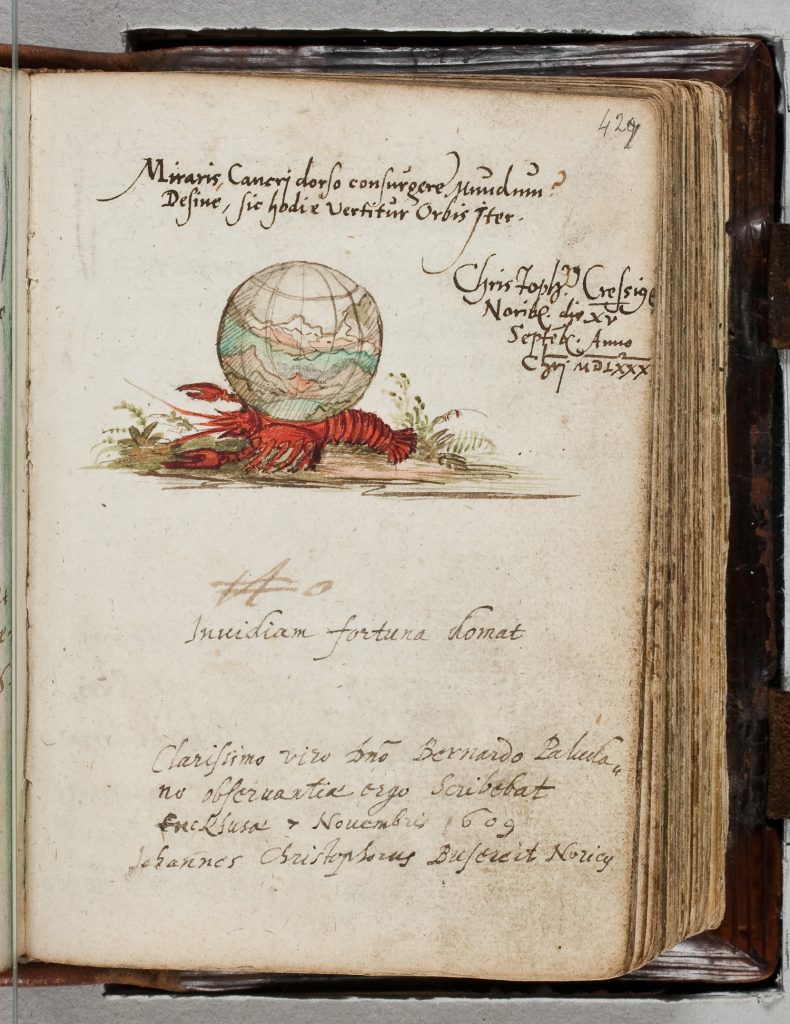 Miraris, Cancrj dorso consurgere Mundum?
Desine, sic hodie vertitur Orbis Jter.
Christoph9 Cressig
Norib. die XV
Septeb. Anno
Chrj MDLXXX
Invidiam fortuna domat
Clarissimo viro Dno Bernardo Paluda„
no observantiæ ergo scribebat
Enckhusæ 7 Novembris 1609
Johannes Christophorus